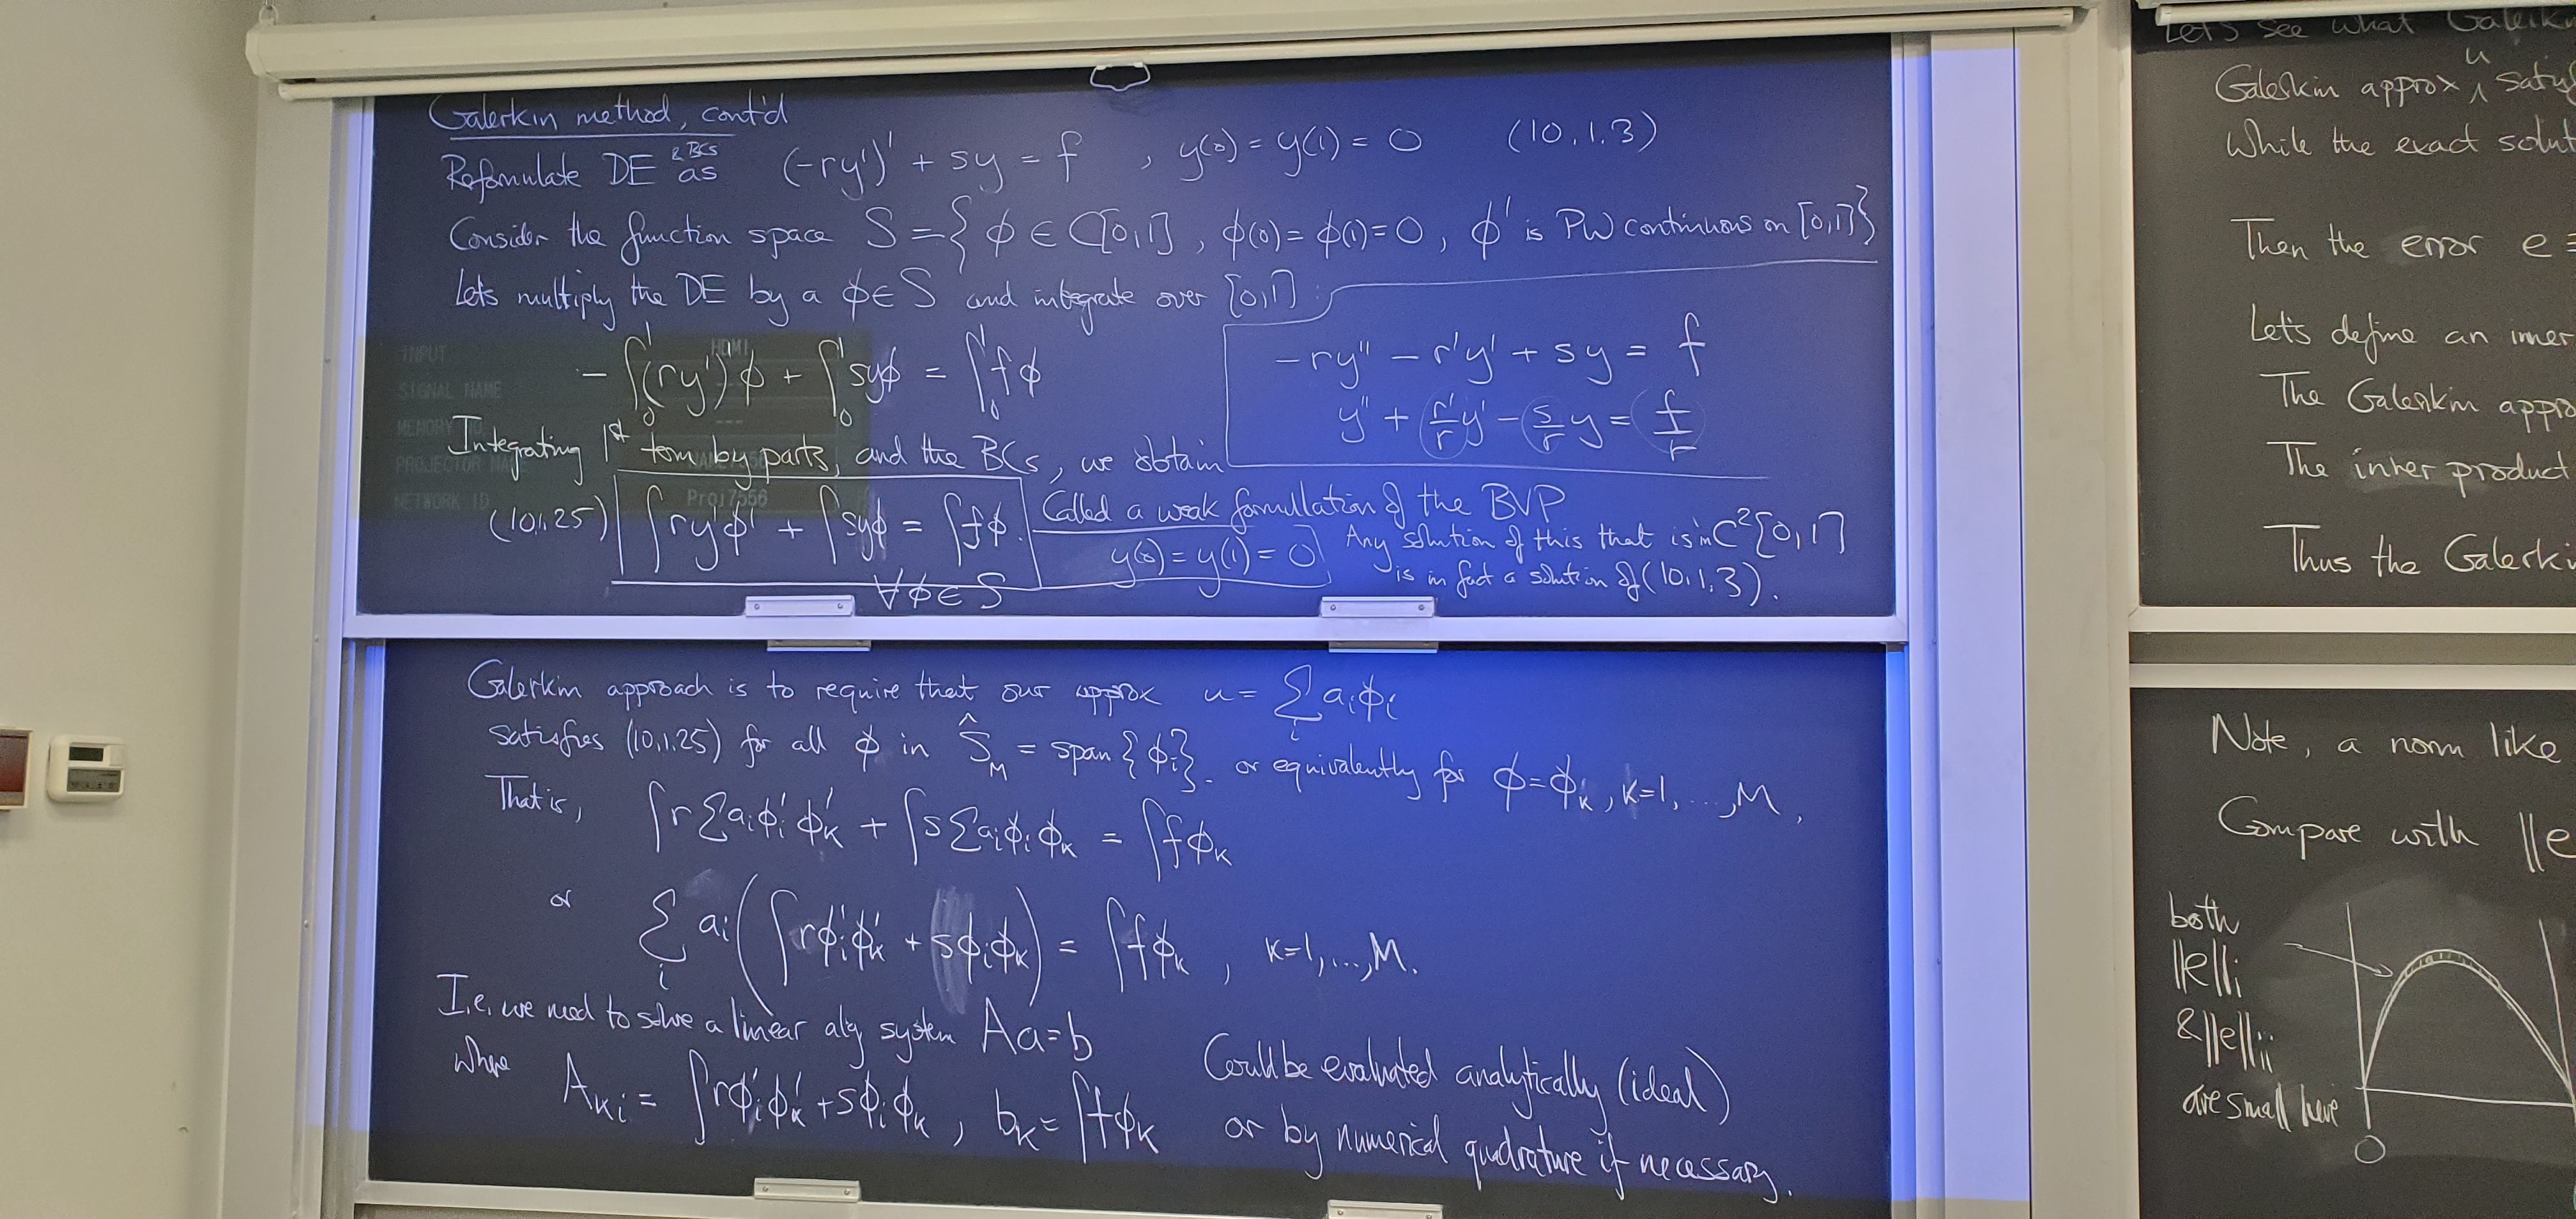 Galerkin method, cont'd
Reformulate DE & BCs as (-ry')' + sy = f , y(0) = y(1) = 0 (10.1.3)
Consider the function space S = { ϕ ∈ C[0,1] , ϕ(0) = ϕ(1) = 0 , ϕ' is PW continuous on [0,1] }
Lets multiply the DE by a ϕ ∈ S and integrate over [0,1] :
- ∫₀¹ (ry')' ϕ + ∫₀¹ syϕ = ∫₀¹ fϕ
-ry'' - r'y' + sy = f
y'' + r'/r y' - s/r y = f/r
Integrating 1st term by parts, and the BCs, we obtain
(10.1.25) ∫ ry'ϕ' + ∫ syϕ = ∫ fϕ . ∀ϕ ∈ S
Called a weak formullation of the BVP
y(0) = y(1) = 0
Any solution of this that is in C²[0,1]
is in fact a solution of (10.1.3).
Galerkin approach is to require that our approx u = Σᵢ aᵢϕᵢ
satisfies (10.1.25) for all ϕ in Ŝ_M = span { ϕᵢ }. or equivalently for ϕ = ϕ_K , K=1, ..., M,
That is, ∫ r Σ aᵢϕᵢ' ϕ_K' + ∫ s Σ aᵢϕᵢ ϕ_K = ∫ f ϕ_K
or Σᵢ aᵢ ( ∫ rϕᵢ'ϕ_K' + sϕᵢϕ_K ) = ∫ fϕ_K , K=1, ..., M.
I.e. we need to solve a linear alg system Aa=b
where A_Ki = ∫ rϕᵢ'ϕ_K' + sϕᵢϕ_K , b_K = ∫ fϕ_K
Could be evaluated analytically (ideal)
or by numerical quadrature if necessary.
INPUT HDMI
SIGNAL NAME ---
MEMORY
---
PROJECTOR
NETWORK ID Proj7556
Let's see what
Galerkin approx u
While the exact
Then the error e
Let's define an inner
The Galerkin
The inner product
Thus the
Note, a norm like
Compare with ||e
both
||e||i
& ||e||ii
are small here
0